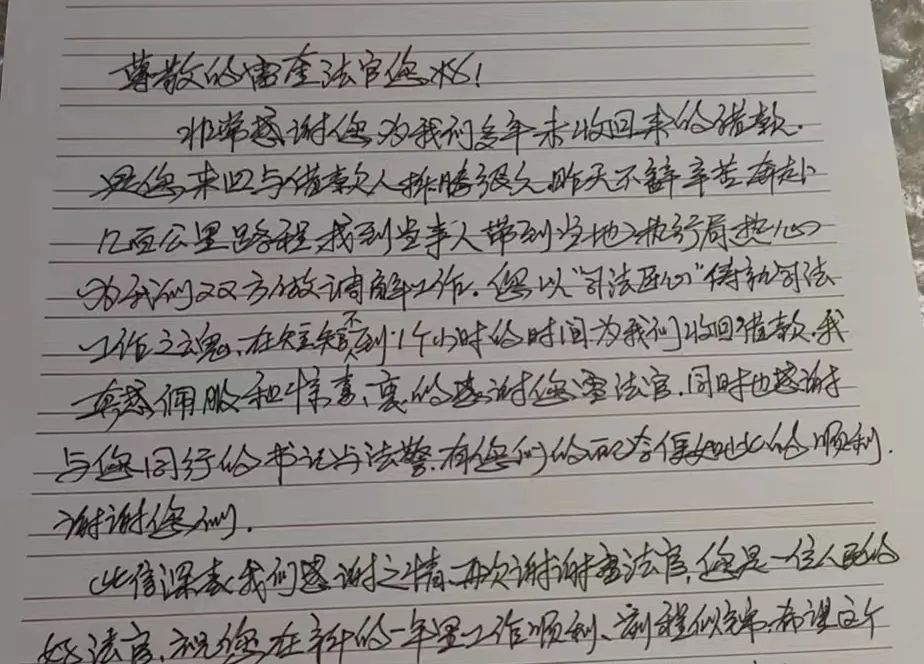 尊敬的雷奎法官您好!
非常感谢您为我们多年未收回来的借款.
是您来回与借款人排腾很久,昨天不辞辛苦奔赴
几百公里路程,找到当事人带到当地执行局,热心
为我们双方做调解工作.您以"司法匠心"铸就司法
工作之魂,在短短不到1个小时的时间为我们收回借款.我
真感佩服和惊喜、衷的感谢您雷法官.同时也感谢
与您同行的书记与法警.有您们的配合便如此的顺利.
谢谢您们.
此信深表我们感谢之情,再次谢谢雷法官,您是一位人民的
好法官,祝您在新的一年里工作顺利、前程似锦.希望这个